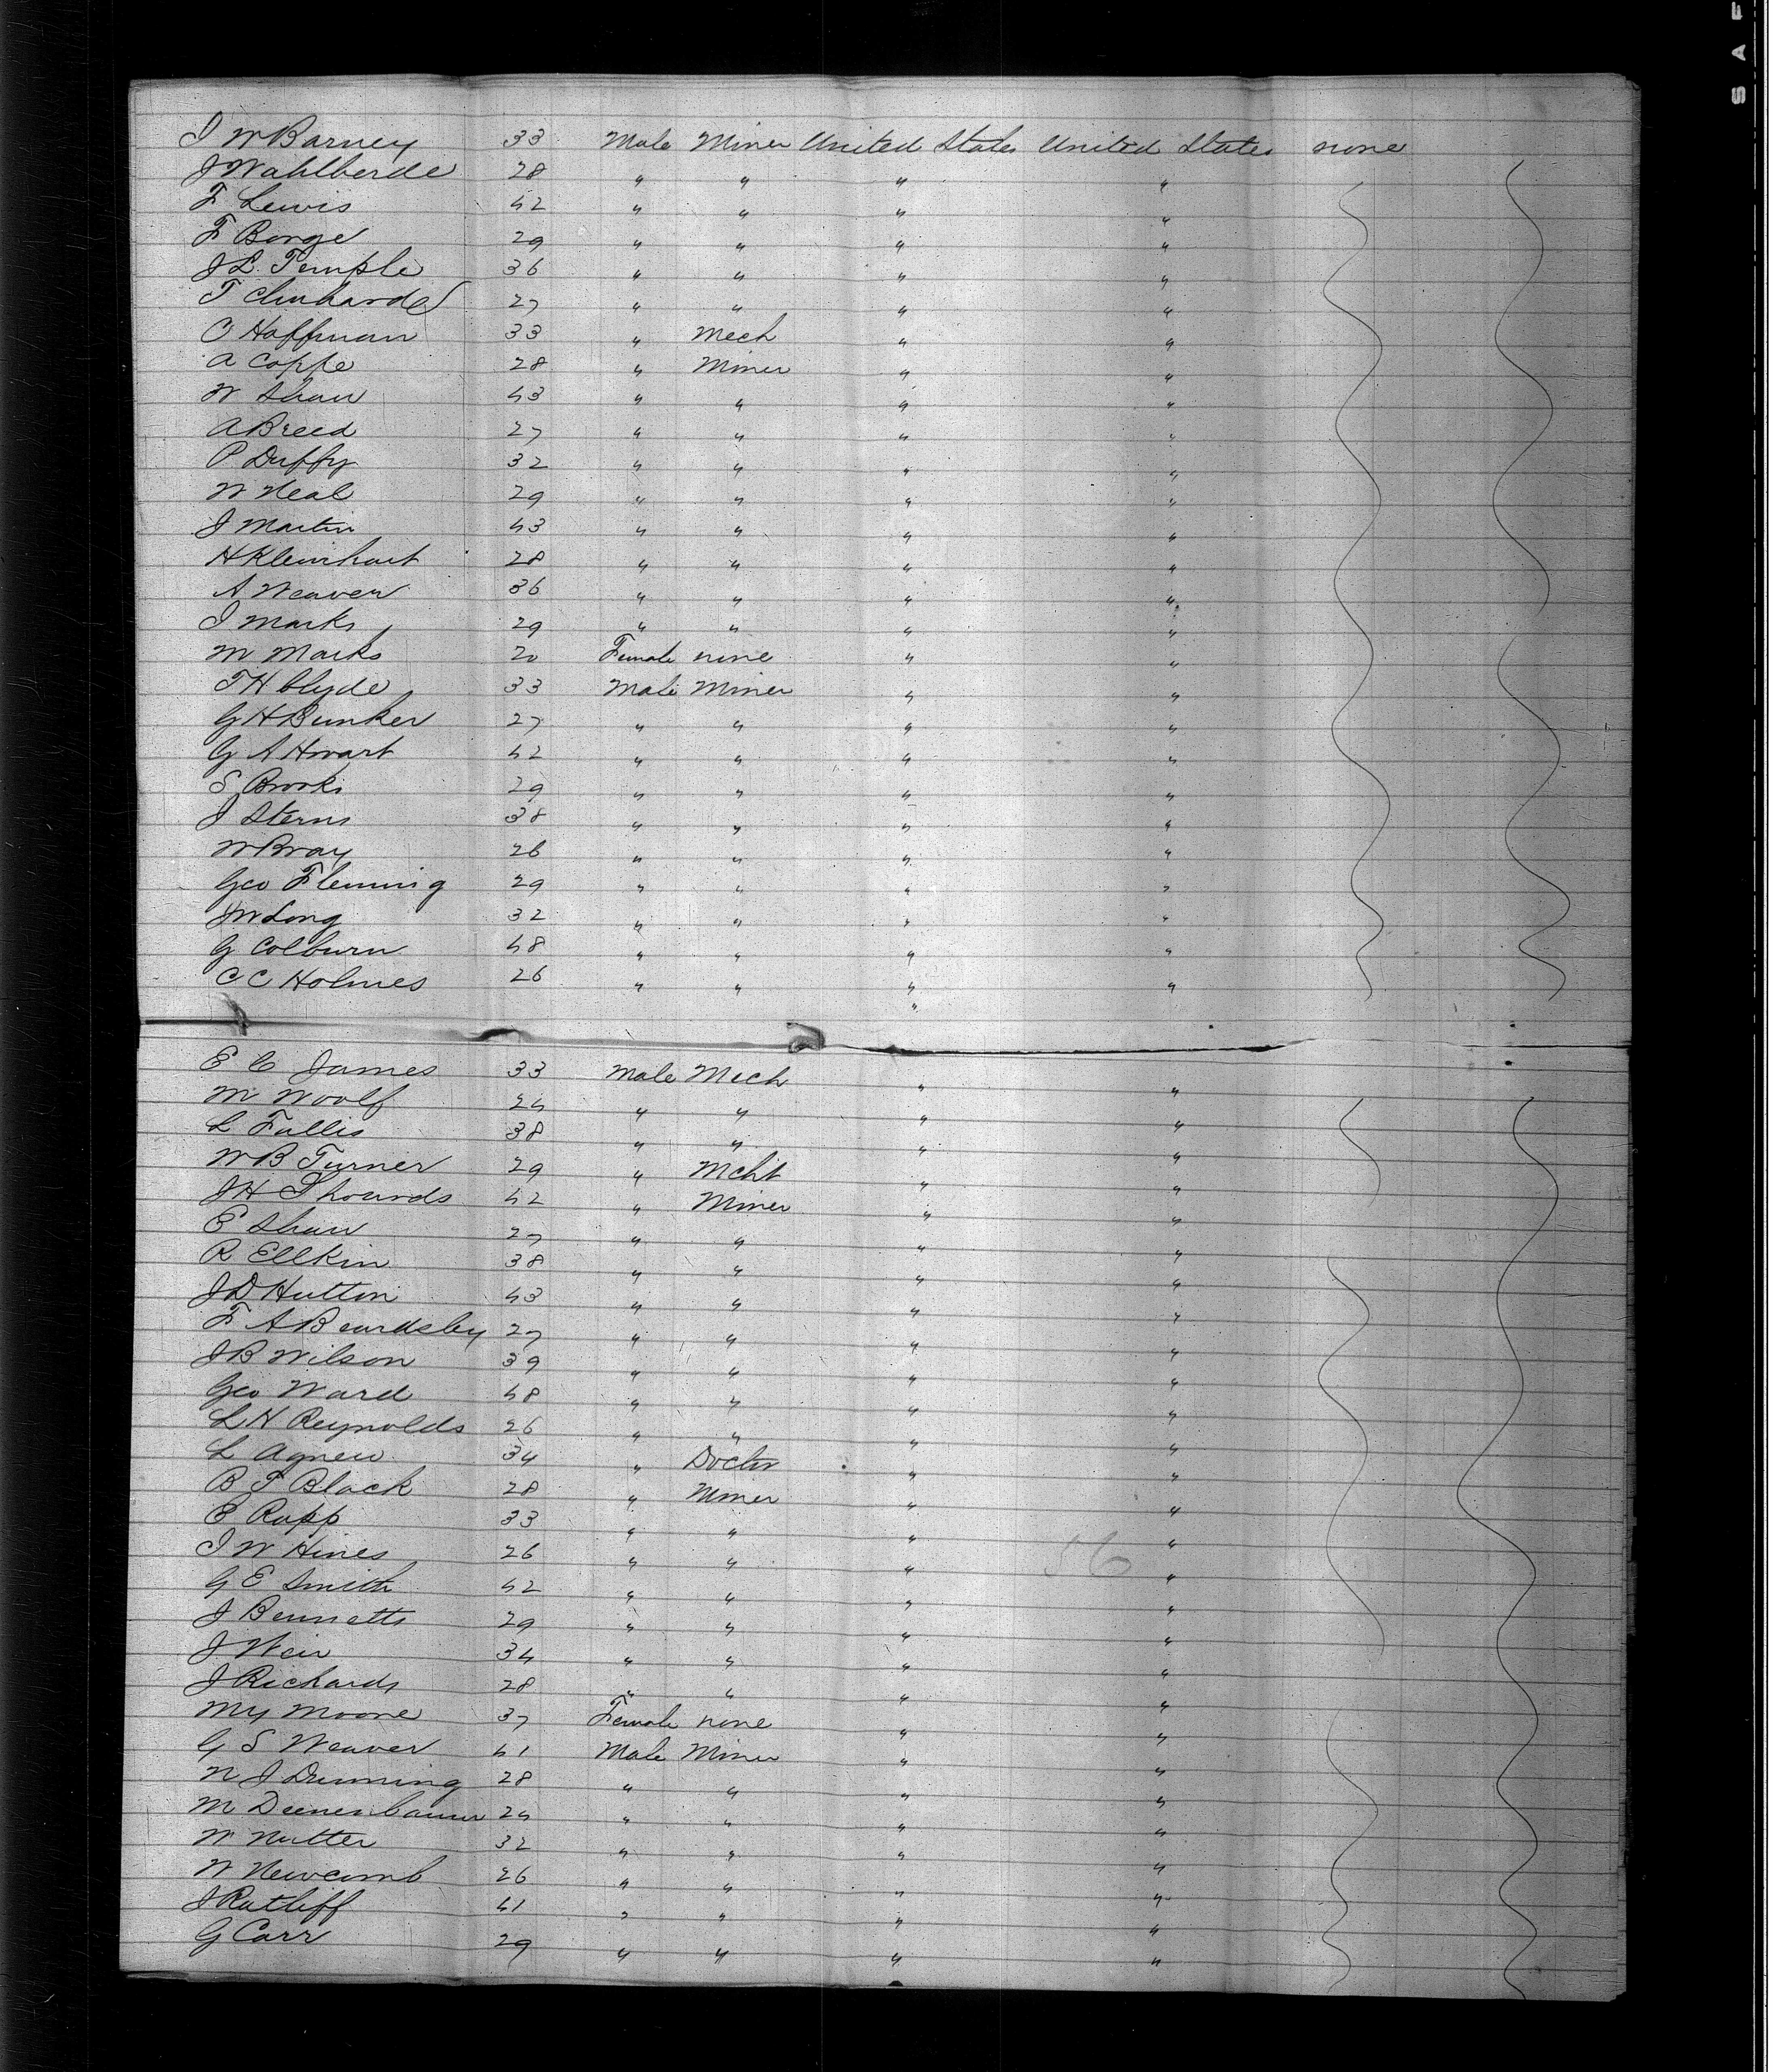 I W Barney 33 Male Miner United States United States none
J Wahlberde 28 " " " "
F Lewis 42 " " " "
F Borge 29 " " " "
J L. Temple 36 " " " "
T 27 " " " "
C Hoffman 33 " Mech " "
A Coppe 28 " Miner " "
W Shaw 43 " " " "
A Breed 27 " " " "
P Duffy 32 " " " "
W Neal 29 " " " "
J Martin 43 " " " "
H Kleinhart 28 " " " "
A Weaver 36 " " " "
I Marks 29 " " " "
M Marks 20 Female none " "
T H Clyde 33 Male Miner " "
G H Bunker 27 " " " "
G A 42 " " " "
S Brooks 29 " " " "
J Sterns 38 " " " "
W Bray 26 " " " "
Geo Fleming 29 " " " "
J W Long 32 " " " "
G Colburn 48 " " " "
C C Holmes 26 " " " "
"
E C James 33 Male Mech " "
M Woolf 24 " " " "
L Fallis 38 " " " "
W B Turner 29 " Mcht " "
J H 42 " Miner " "
E Shaw 27 " " " "
R Ellkin 38 " " " "
J D Hutton 43 " " " "
F A Beardsley 27 " " " "
J B Wilson 39 " " " "
Geo Ward 48 " " " "
L H Reynolds 26 " " " "
L Agnew 34 " Doctor " "
B T Black 28 " Miner " "
E Rapp 33 " " " "
I W Hines 26 " " " "
56
G E Smith 42 " " " "
J Bennetts 29 " " " "
J Weir 34 " " " "
J Richards 28 " " " "
My Moore 37 Female none " "
G S Weaver 41 Male Miner " "
N J Dunning 28 " " " "
M 24 " " " "
W Nutter 32 " " " "
W Newcomb 26 " " " "
J Ratliff 41 " " " "
G Carr 29 " " " "
SAF